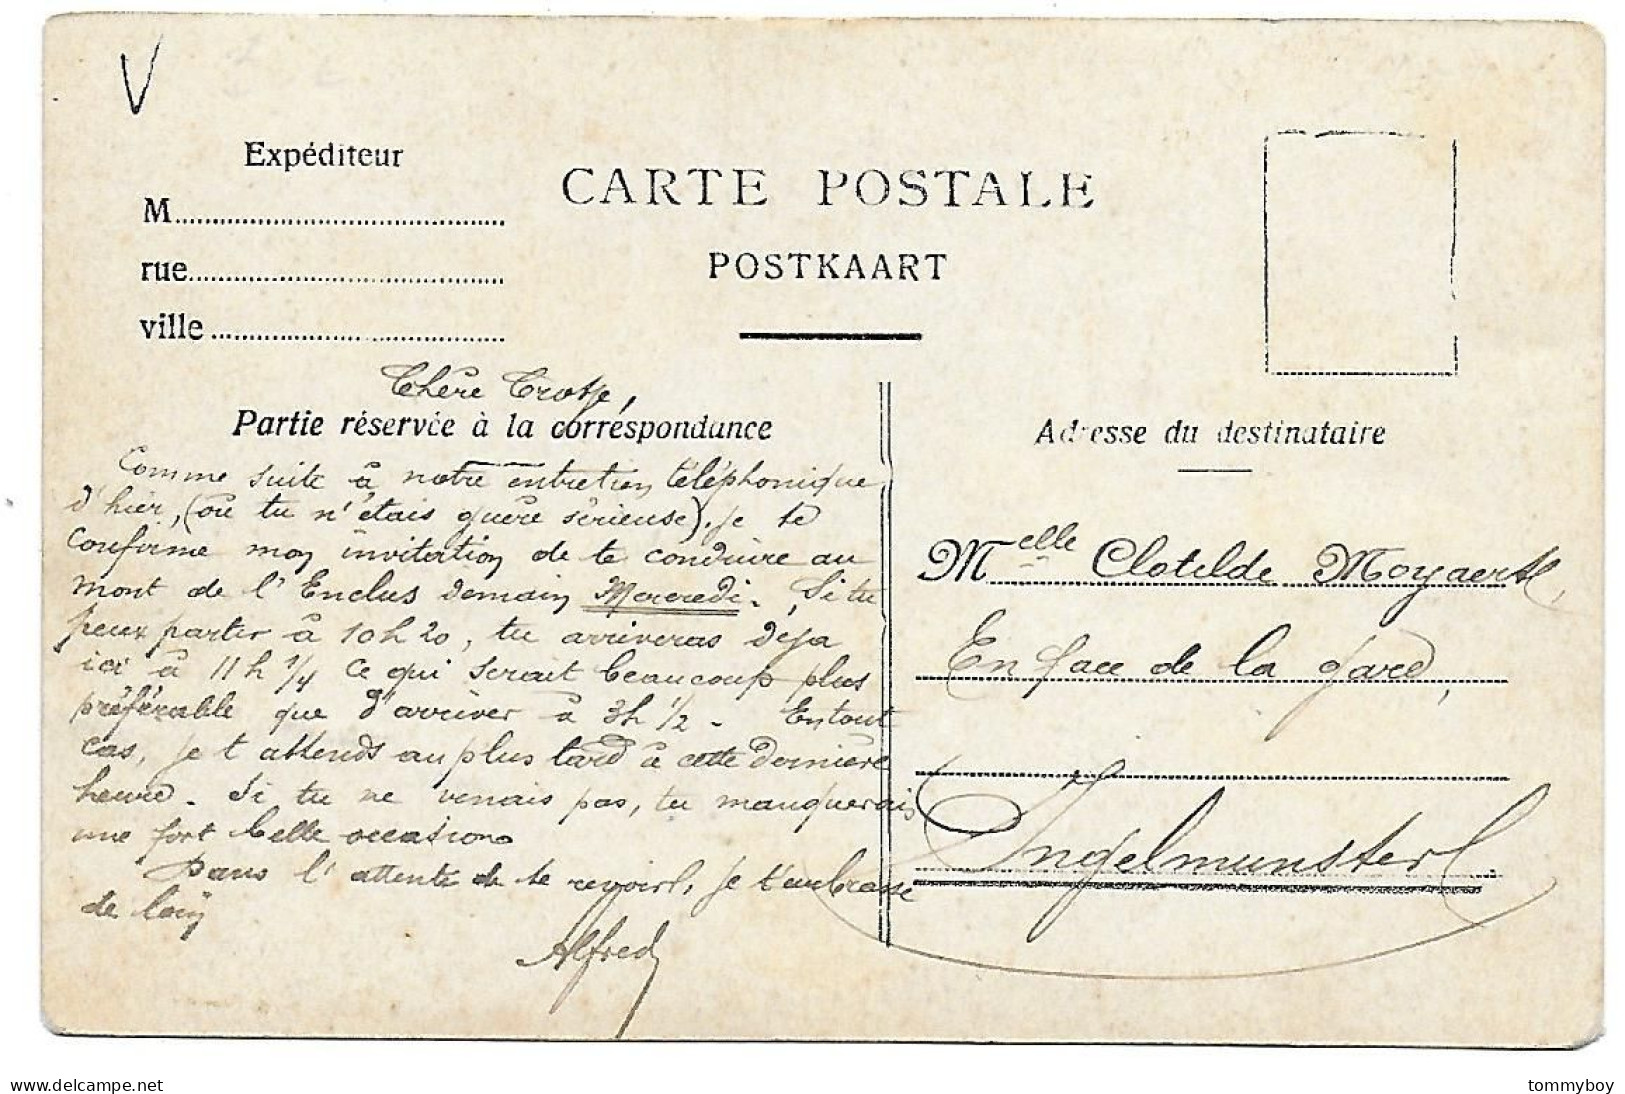 V
Expéditeur
M
rue
ville
CARTE POSTALE
POSTKAART
Chère
Partie réservée à la correspondance
Comme suite à notre entretien téléphonique
d'hier, (où tu n'étais guère sérieuse), je te
confirme mon invitation de te conduire au
mont de l'Enclus demain Mercredi. Si tu
peux partir à 10h20, tu arriveras déjà
ici à 11h 1/4 ce qui serait beaucoup plus
préférable que d'arriver à 3h 1/2. En tout
cas, je t'attends au plus tard à cette dernière
heure. Si tu ne venais pas, tu manquerais
une fort belle occasion.
Dans l'attente de te revoir, je t'embrasse
de loin
Alfred
Adresse du destinataire
Melle Clotilde Moyaert,
En face de la gare,
Ingelmunster.
delcampe.net
tommyboy